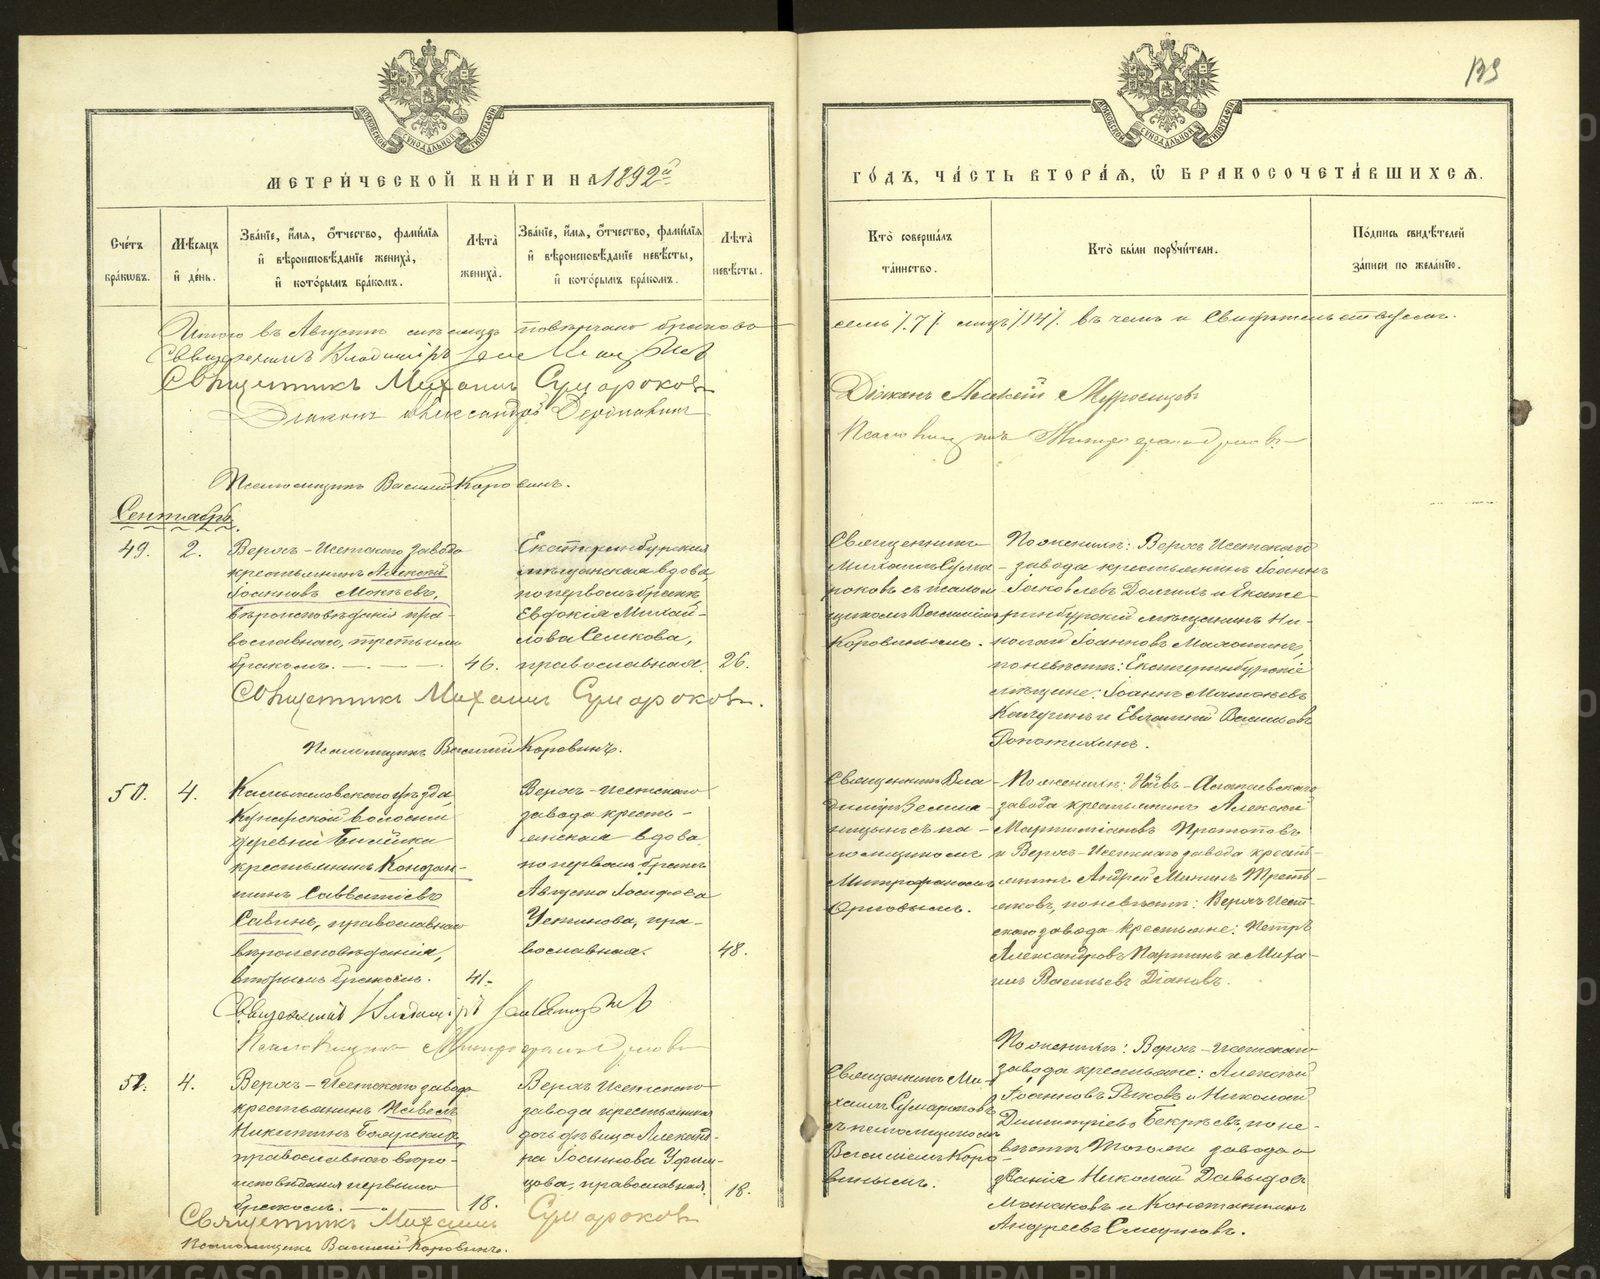 139
МЕТРИ́ЧЕСКОЙ КНИ́ГИ НА 1892й
ГО́ДЪ, ЧА́СТЬ ВТОРА́Я, Ѿ БРАКОСОЧЕТА́ВШИХСЯ.
Сче́тъ бра́ковъ.
Мѣ́сяцъ и҆ де́нь.
Зва́нїе, и҆́мя, о҆́тчество, фами́лїя
и҆ вѣроисповѣ́данїе жениха̀,
и҆ кото́рымъ бра́комъ.
Лѣ́та жениха̀.
Зва́нїе, и҆́мя, о҆́тчество, фами́лїя
и҆ вѣроисповѣ́данїе невѣ́сты,
и҆ кото́рымъ бра́комъ.
Лѣ́та невѣ́сты.
Кто̀ соверша́лъ
та́инство.
Кто̀ бы́ли поручи́тели.
По́дпись свидѣ́телей
за́писи по жела́нїю.
Итого въ Августѣ мѣсяцѣ повѣнчано браковъ
семь /.7/. лицъ /14/. въ чемъ и Свидѣтельствуемъ.
Священникъ Владиміръ Земляницынъ
Священникъ Михаилъ Сумароковъ
Діаконъ Александръ
Діаконъ Алексѣй
Псаломщикъ Митрофанъ Орловъ
Псаломщикъ Василій Коровинъ.
Сентябрь.
49.
2.
Верхъ-Исетскаго завода
крестьянинъ Алексѣй
Іоанновъ Мокѣевъ,
вѣроисповѣданія пра-
вославнаго, третьимъ
бракомъ.
46.
Екатеринбургская
мѣщанская вдова,
по первомъ бракѣ
Евдокія Михай-
лова Селкова,
православная.
26.
Священникъ
Михаилъ Сума-
роковъ съ псалом-
щикомъ Василіемъ
Коровинымъ.
По женихѣ: Верхъ Исетскаго
завода крестьянинъ Іоаннъ
Іаковлевъ Долгихъ и Екате-
ринбургскій мѣщанинъ Ни-
колай Іоанновъ
по невѣстѣ: Екатеринбургскіе
мѣщане: Іоаннъ
и Евгеній
Священникъ Михаилъ Сумароковъ.
Псаломщикъ Василій Коровинъ.
50.
4.
Камышловскаго уѣзда,
Кунарской волости
деревни
крестьянинъ Констан-
тинъ Савватіевъ
Савинъ, православнаго
вѣроисповѣданія,
вторымъ бракомъ.
41.
Верхъ-Исетскаго
завода кресть-
янская вдова,
по первомъ бракѣ
Августа Іосифова
Устинова, пра-
вославная.
48.
Священникъ Вла-
диміръ Земля-
ницынъ съ пса-
ломщикомъ
Митрофаномъ
Орловымъ.
По женихѣ:
завода крестьянинъ Алексѣй
и Верхъ-Исетскаго завода кресть-
янинъ Андрей Третья-
ковъ, по невѣстѣ: Верхъ Исет-
скаго завода крестьяне: Петръ
Александровъ и Миха-
илъ Васильевъ
Священникъ Владиміръ Земляницынъ
Псаломщикъ Митрофанъ Орловъ
51.
4.
Верхъ-Исетскаго завода
крестьянинъ Павелъ
Никитинъ Боярскихъ,
православнаго вѣро-
исповѣданія первымъ
бракомъ.
18.
Верхъ Исетскаго
завода крестьянина
дочь дѣвица Александ-
ра Іоаннова
православная.
18.
Священникъ Ми-
хаилъ Сумароковъ
съ псаломщикомъ
Василіемъ Коро-
винымъ.
По женихѣ: Верхъ-Исетскаго
завода крестьяне: Алексѣй
Іоанновъ и Николай
Димитріевъ по не-
вѣстѣ завода и
званія Николай Давыдовъ
и Константинъ
Андреевъ Смирновъ.
Священникъ Михаилъ Сумароковъ
Псаломщикъ Василій Коровинъ.
METRIKI.GASO-URAL.RU